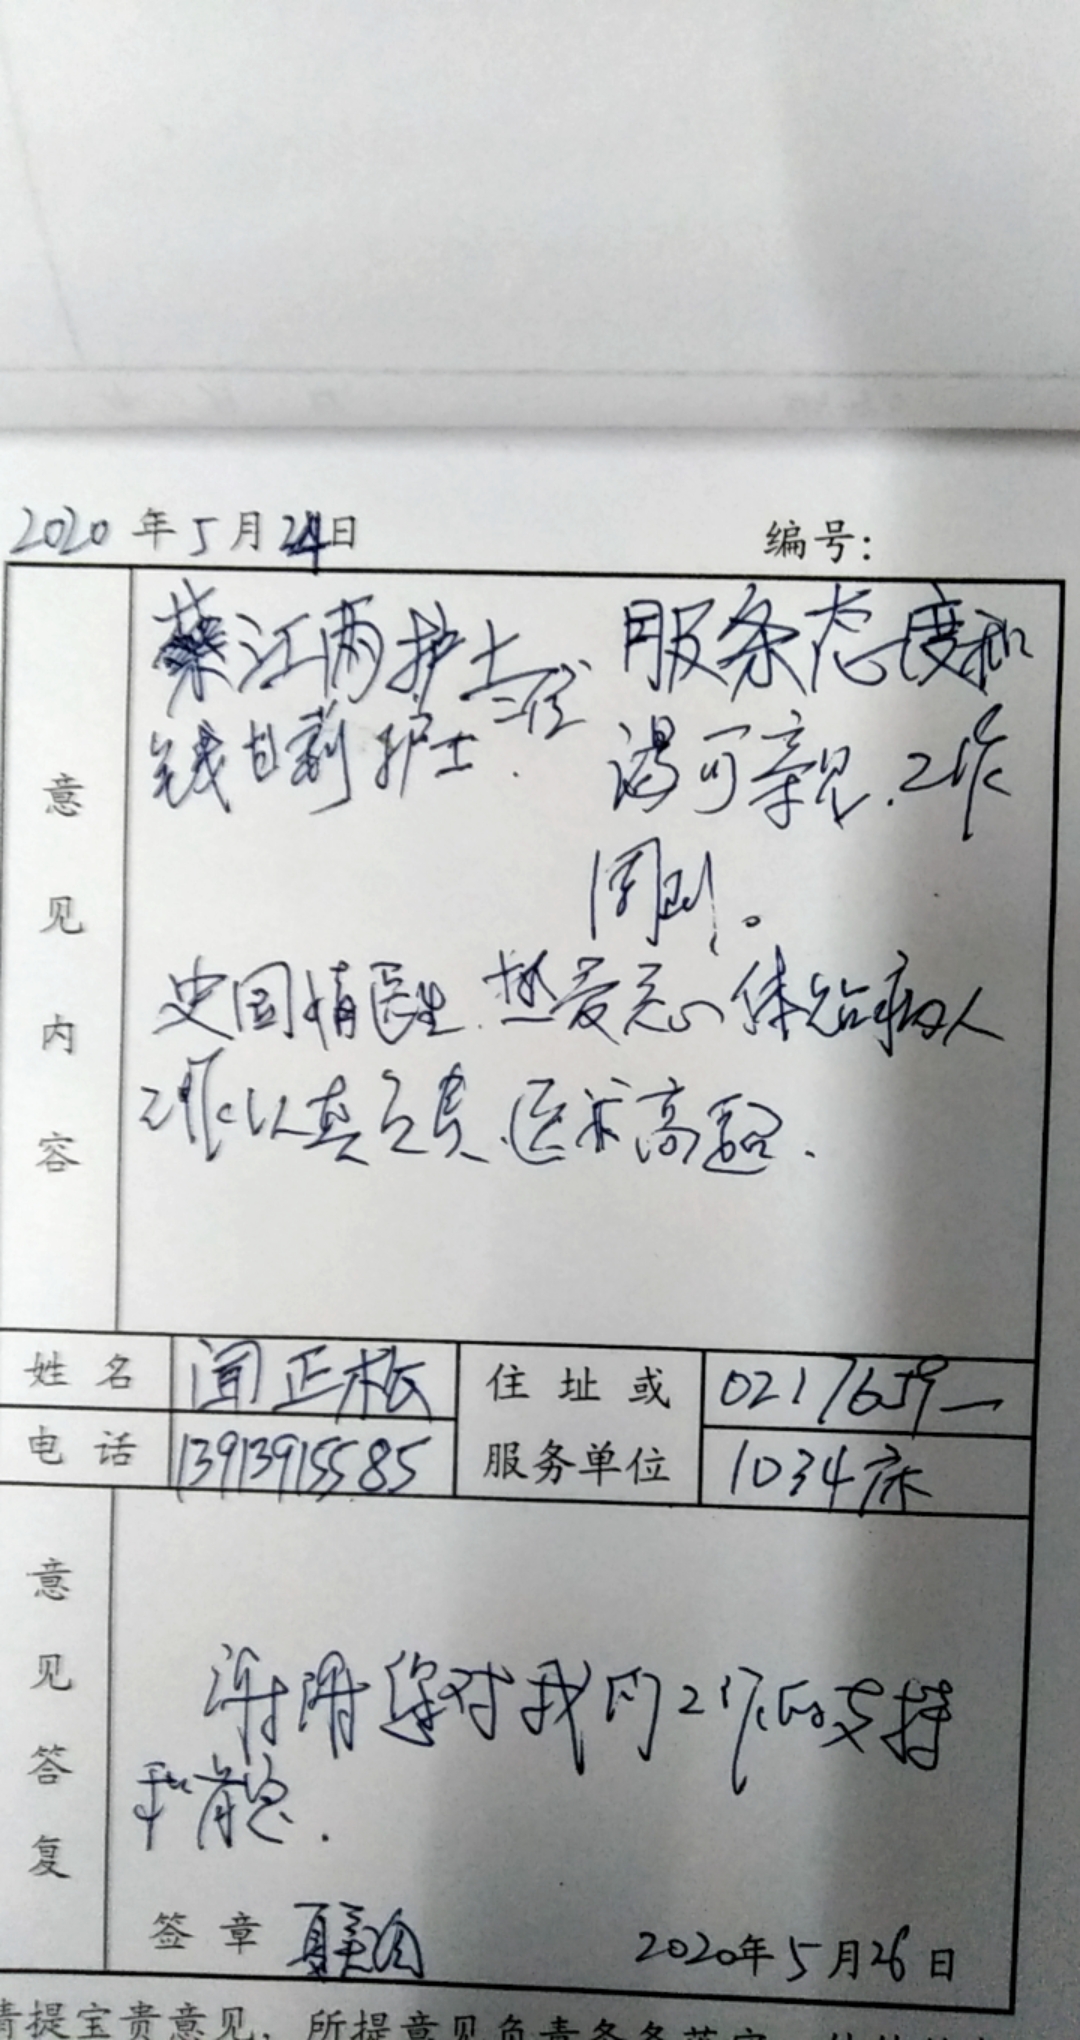 2020年5月24日 编号:
意见内容
蔡江两护士 二位 服务态度和
钱甘莉护士. 蔼可亲, 工作
周到。
史国情医生. 热爱关心体贴病人
工作认真负责, 医术高超.
姓名 闻正松 住址或 0217659一
电话 13913915585 服务单位 1034床
意见答复
谢谢您对我们工作的支持
和肯定.
签章 2020年5月26日
请提宝贵意见, 所提意见负责条条落实